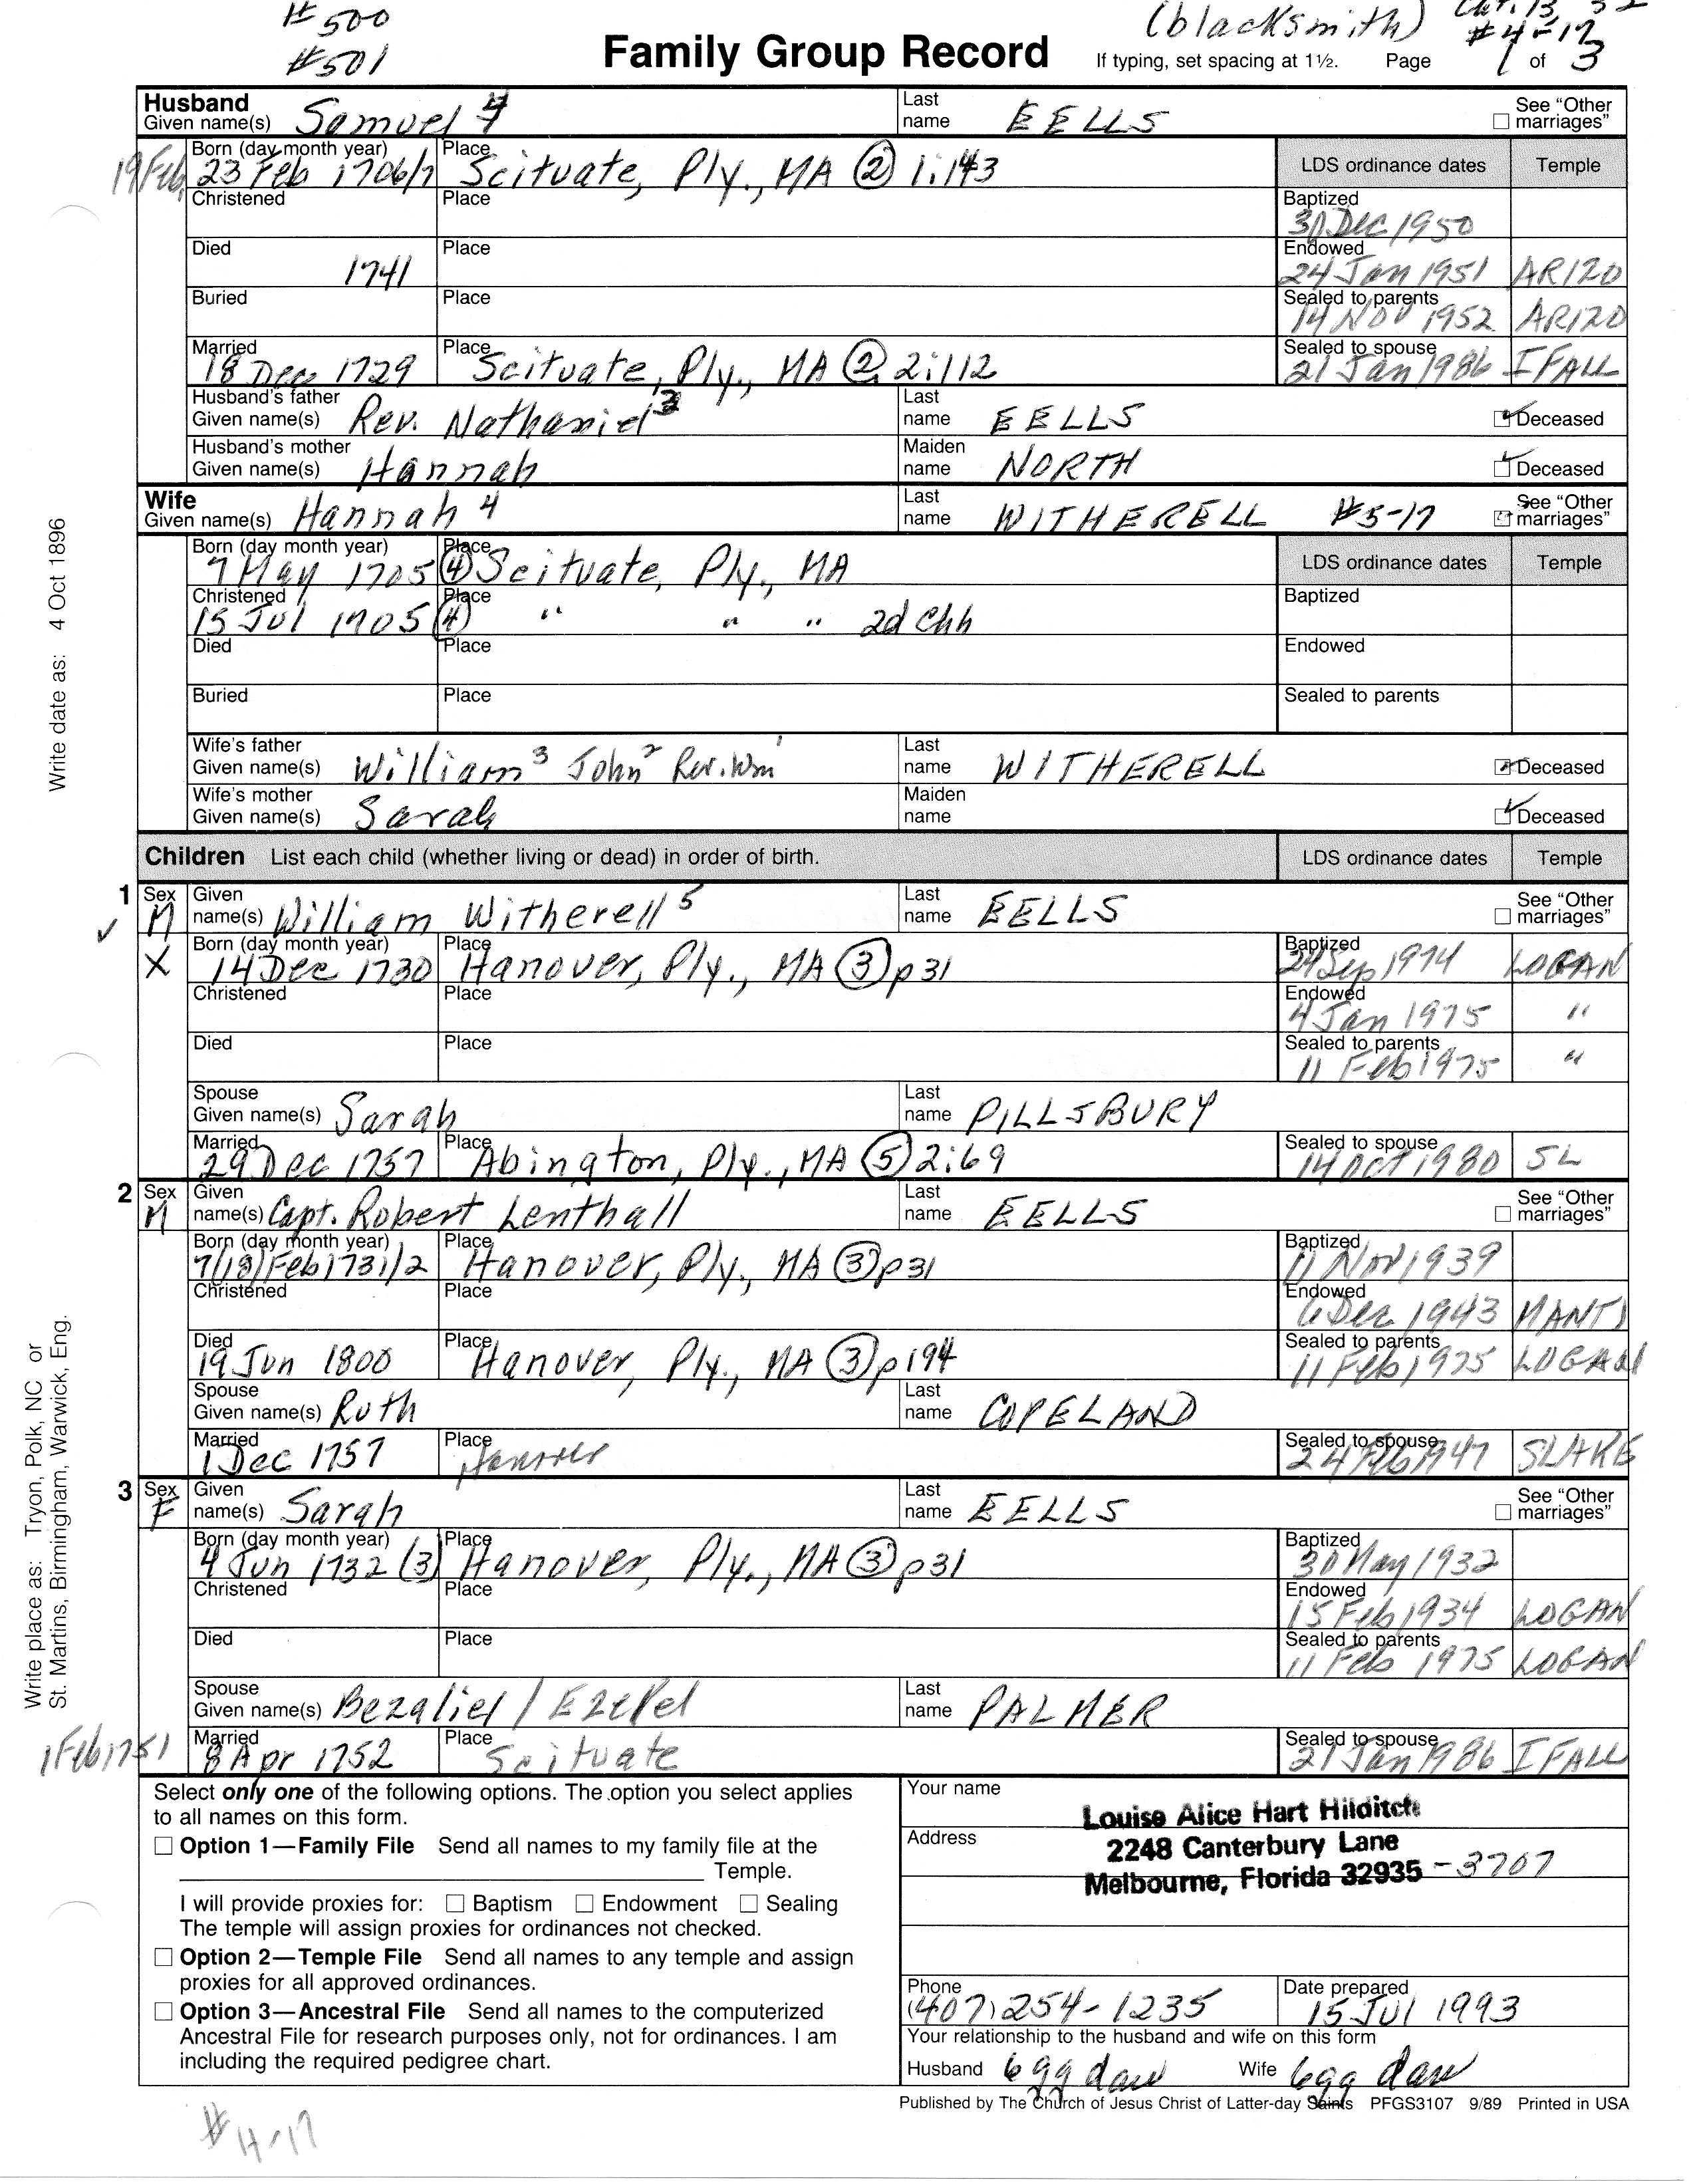 # 500
# 501
(blacksmith) Cht. 13, 32
# 4-17
Family Group Record If typing, set spacing at 1½. Page 1 of 3
Husband
Given name(s) Samuel 4 Last name EELLS See "Other marriages"
19 Feb
Born (day month year) 23 Feb 1706/7 Place Scituate, Ply., MA (2) 1:143 LDS ordinance dates Temple
Christened Place Baptized 30 Dec 1950
Died 1741 Place Endowed 24 Jan 1951 ARIZO
Buried Place Sealed to parents 14 Nov 1952 ARIZO
Married 18 Dec 1729 Place Scituate, Ply., MA (2) 2:112 Sealed to spouse 21 Jan 1986 IFALL
Husband's father Given name(s) Rev. Nathaniel 3 Last name EELLS Deceased
Husband's mother Given name(s) Hannah Maiden name NORTH Deceased
Wife
Given name(s) Hannah 4 Last name WITHERELL #5-17 See "Other marriages"
Born (day month year) 7 May 1705 (4) Place Scituate, Ply., MA LDS ordinance dates Temple
Christened 15 Jul 1705 (4) Place " " " 2d Chh Baptized
Died Place Endowed
Buried Place Sealed to parents
Wife's father Given name(s) William 3 John 2 Rev. Wm 1 Last name WITHERELL Deceased
Wife's mother Given name(s) Sarah Maiden name Deceased
Write date as: 4 Oct 1896
Children List each child (whether living or dead) in order of birth. LDS ordinance dates Temple
1 Sex M Given name(s) William Witherell 5 Last name EELLS See "Other marriages"
X Born (day month year) 14 Dec 1730 Place Hanover, Ply., MA (3) p31 Baptized 24 Sep 1974 LOGAN
Christened Place Endowed 4 Jan 1975 "
Died Place Sealed to parents 11 Feb 1975 "
Spouse Given name(s) Sarah Last name PILLSBURY
Married 29 Dec 1757 Place Abington, Ply., MA (5) 2:69 Sealed to spouse 14 Oct 1980 SL
2 Sex M Given name(s) Capt. Robert Lenthall Last name EELLS See "Other marriages"
Born (day month year) 7/(18) Feb 1731/2 Place Hanover, Ply., MA (3) p31 Baptized 11 Nov 1939
Christened Place Endowed 6 Dec 1943 MANTI
Died 19 Jun 1800 Place Hanover, Ply., MA (3) p194 Sealed to parents 11 Feb 1975 LOGAN
Spouse Given name(s) Ruth Last name COPELAND
Married 1 Dec 1757 Place Hanover Sealed to spouse 24 Feb 1947 SLAKE
3 Sex F Given name(s) Sarah Last name EELLS See "Other marriages"
Born (day month year) 4 Jun 1732 (3) Place Hanover, Ply., MA (3) p31 Baptized 30 May 1932
Christened Place Endowed 15 Feb 1934 LOGAN
Died Place Sealed to parents 11 Feb 1975 LOGAN
Spouse Given name(s) Bezaliel / Last name PALMER
1 Feb 1751
Married 8 Apr 1752 Place Scituate Sealed to spouse 21 Jan 1986 IFALL
Write place as: Tryon, Polk, NC or
St. Martins, Birmingham, Warwick, Eng.
Select only one of the following options. The option you select applies
to all names on this form.
Option 1—Family File Send all names to my family file at the
Temple.
I will provide proxies for: Baptism Endowment Sealing
The temple will assign proxies for ordinances not checked.
Option 2—Temple File Send all names to any temple and assign
proxies for all approved ordinances.
Option 3—Ancestral File Send all names to the computerized
Ancestral File for research purposes only, not for ordinances. I am
including the required pedigree chart.
Your name Louise Alice Hart Hilditch
Address 2248 Canterbury Lane
Melbourne, Florida 32935 -3707
Phone (407) 254-1235 Date prepared 15 Jul 1993
Your relationship to the husband and wife on this form
Husband 6 gg dau Wife 6 gg dau
Published by The Church of Jesus Christ of Latter-day Saints PFGS3107 9/89 Printed in USA
# 4-17